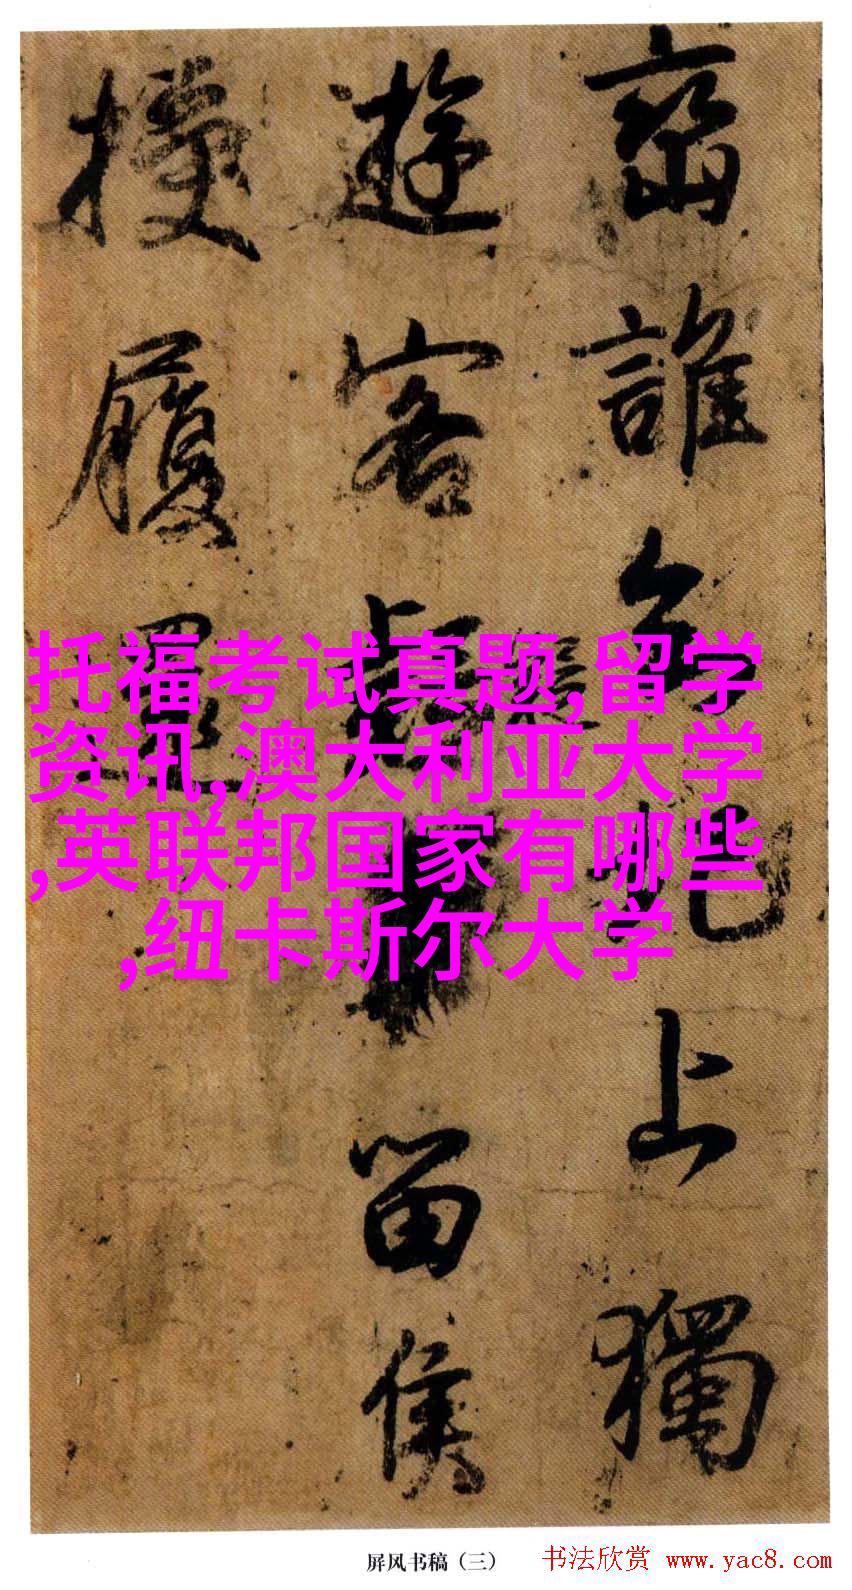 誰圯上獨
遊客留侯
授履
托福考试真题,留学
资讯,澳大利亚大学
,英联邦国家有哪些
,纽卡斯尔大学
屏风书稿（三）
书法欣赏 www.yac8.com